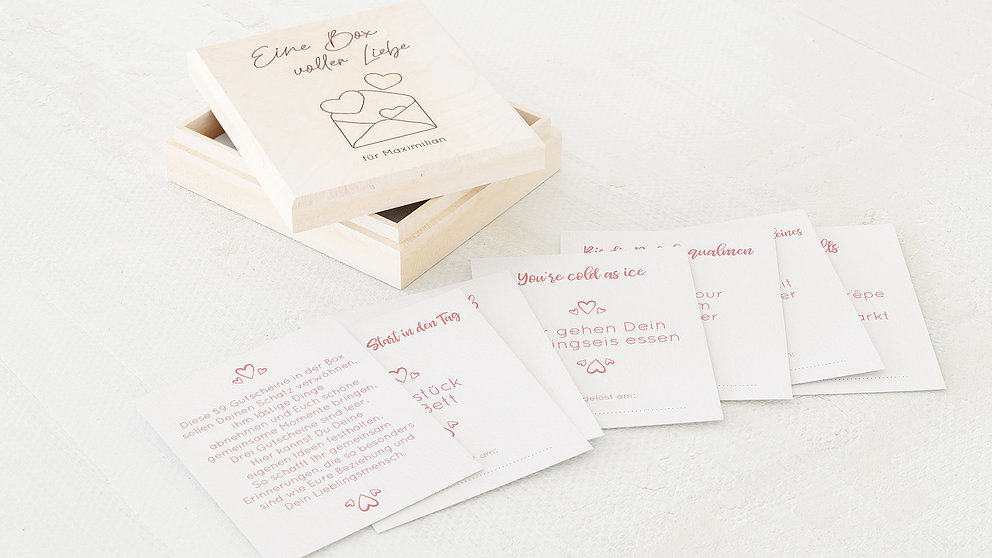 Eine Box
voller Liebe
für Maximilian
Diese 59 Gutscheine in der Box
sollen Deinen Schatz verwöhnen,
ihm lästige Dinge
abnehmen und Euch schöne
gemeinsame Momente bringen.
Drei Gutscheine sind leer.
Hier kannst Du Deine
eigenen Ideen festhalten.
So schafft Ihr gemeinsam
Erinnerungen, die so besonders
sind wie Eure Beziehung und
Dein Lieblingsmensch.
Start in den Tag
stück
Bett
am:
You're cold as ice
gehen Dein
ingseis essen
gelöst am:
qualmen
our
m
er
eines
lt
er
lls
rêpe
arkt